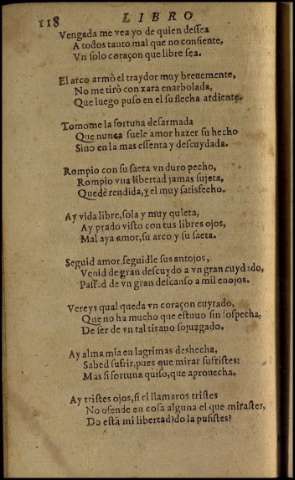 118 LIBRO
Vengada me vea yo de quien dessea
A todos tanto mal que no consiente,
Vn solo coraçon que libre sea.
El arco armò el traydor muy breuemente,
No me tirò con xara enarbolada,
Que luego puso en el su flecha ardiente.
Tomome la fortuna desarmada
Que nunca suele amor hazer su hecho
Sino en la mas essenta y descuydada.
Rompio con su saeta vn duro pecho,
Rompio vna libertad jamas sujeta,
Quedè rendida, y el muy satisfecho.
Ay vida libre, sola y muy quieta,
Ay prado visto con tus libres ojos,
Mal aya amor, su arco y su saeta.
Seguid amor, seguidle sus antojos,
Venid de gran descuydo a vn gran cuydado,
Passad de vn gran descanso a mil enojos.
Vereys qual queda vn coraçon cuytado,
Que no ha mucho que estuuo sin sospecha,
De ser de vn tal tirano sojuzgado.
Ay alma mia en lagrimas deshecha,
Sabed sufrir, pues que mirar supistes:
Mas si fortuna quiso, que aprouecha.
Ay tristes ojos, si el llamaros tristes
No ofende en cosa alguna el que mirastes,
Do está mi libertad? do la pusistes?